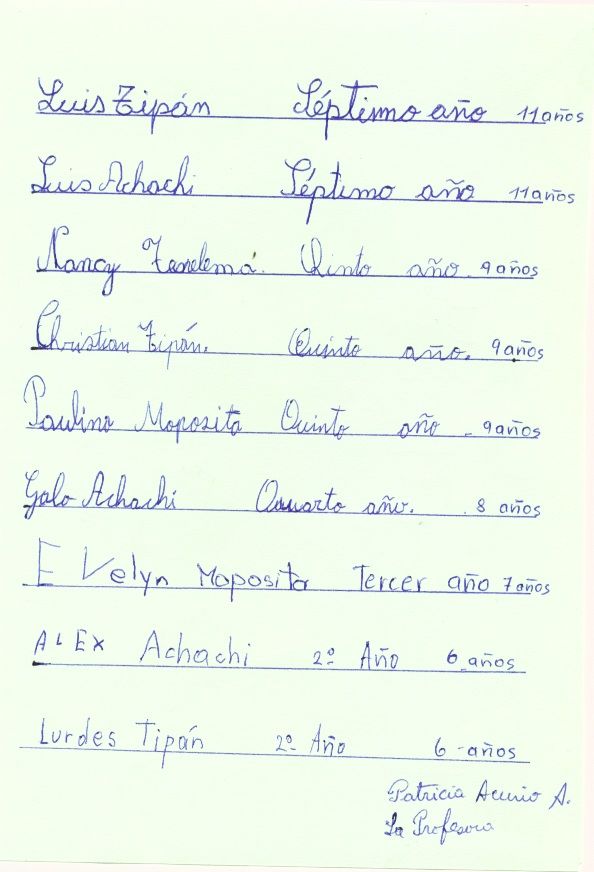 Luis Tipán Séptimo año 11 años
Luis Achachi Séptimo año 11 años
Nancy Tenelema. Quinto año. 9 años
Christian Tipán. Quinto año. 9 años
Paulina Moposita Quinto año - 9 años
Galo Achachi Cuarto año. 8 años
EVelyn Moposita Tercer año 7 años
ALEX Achachi 2º Año 6 años
Lurdes Tipán 2º Año 6 - años
Patricia Acurio A.
La Profesora